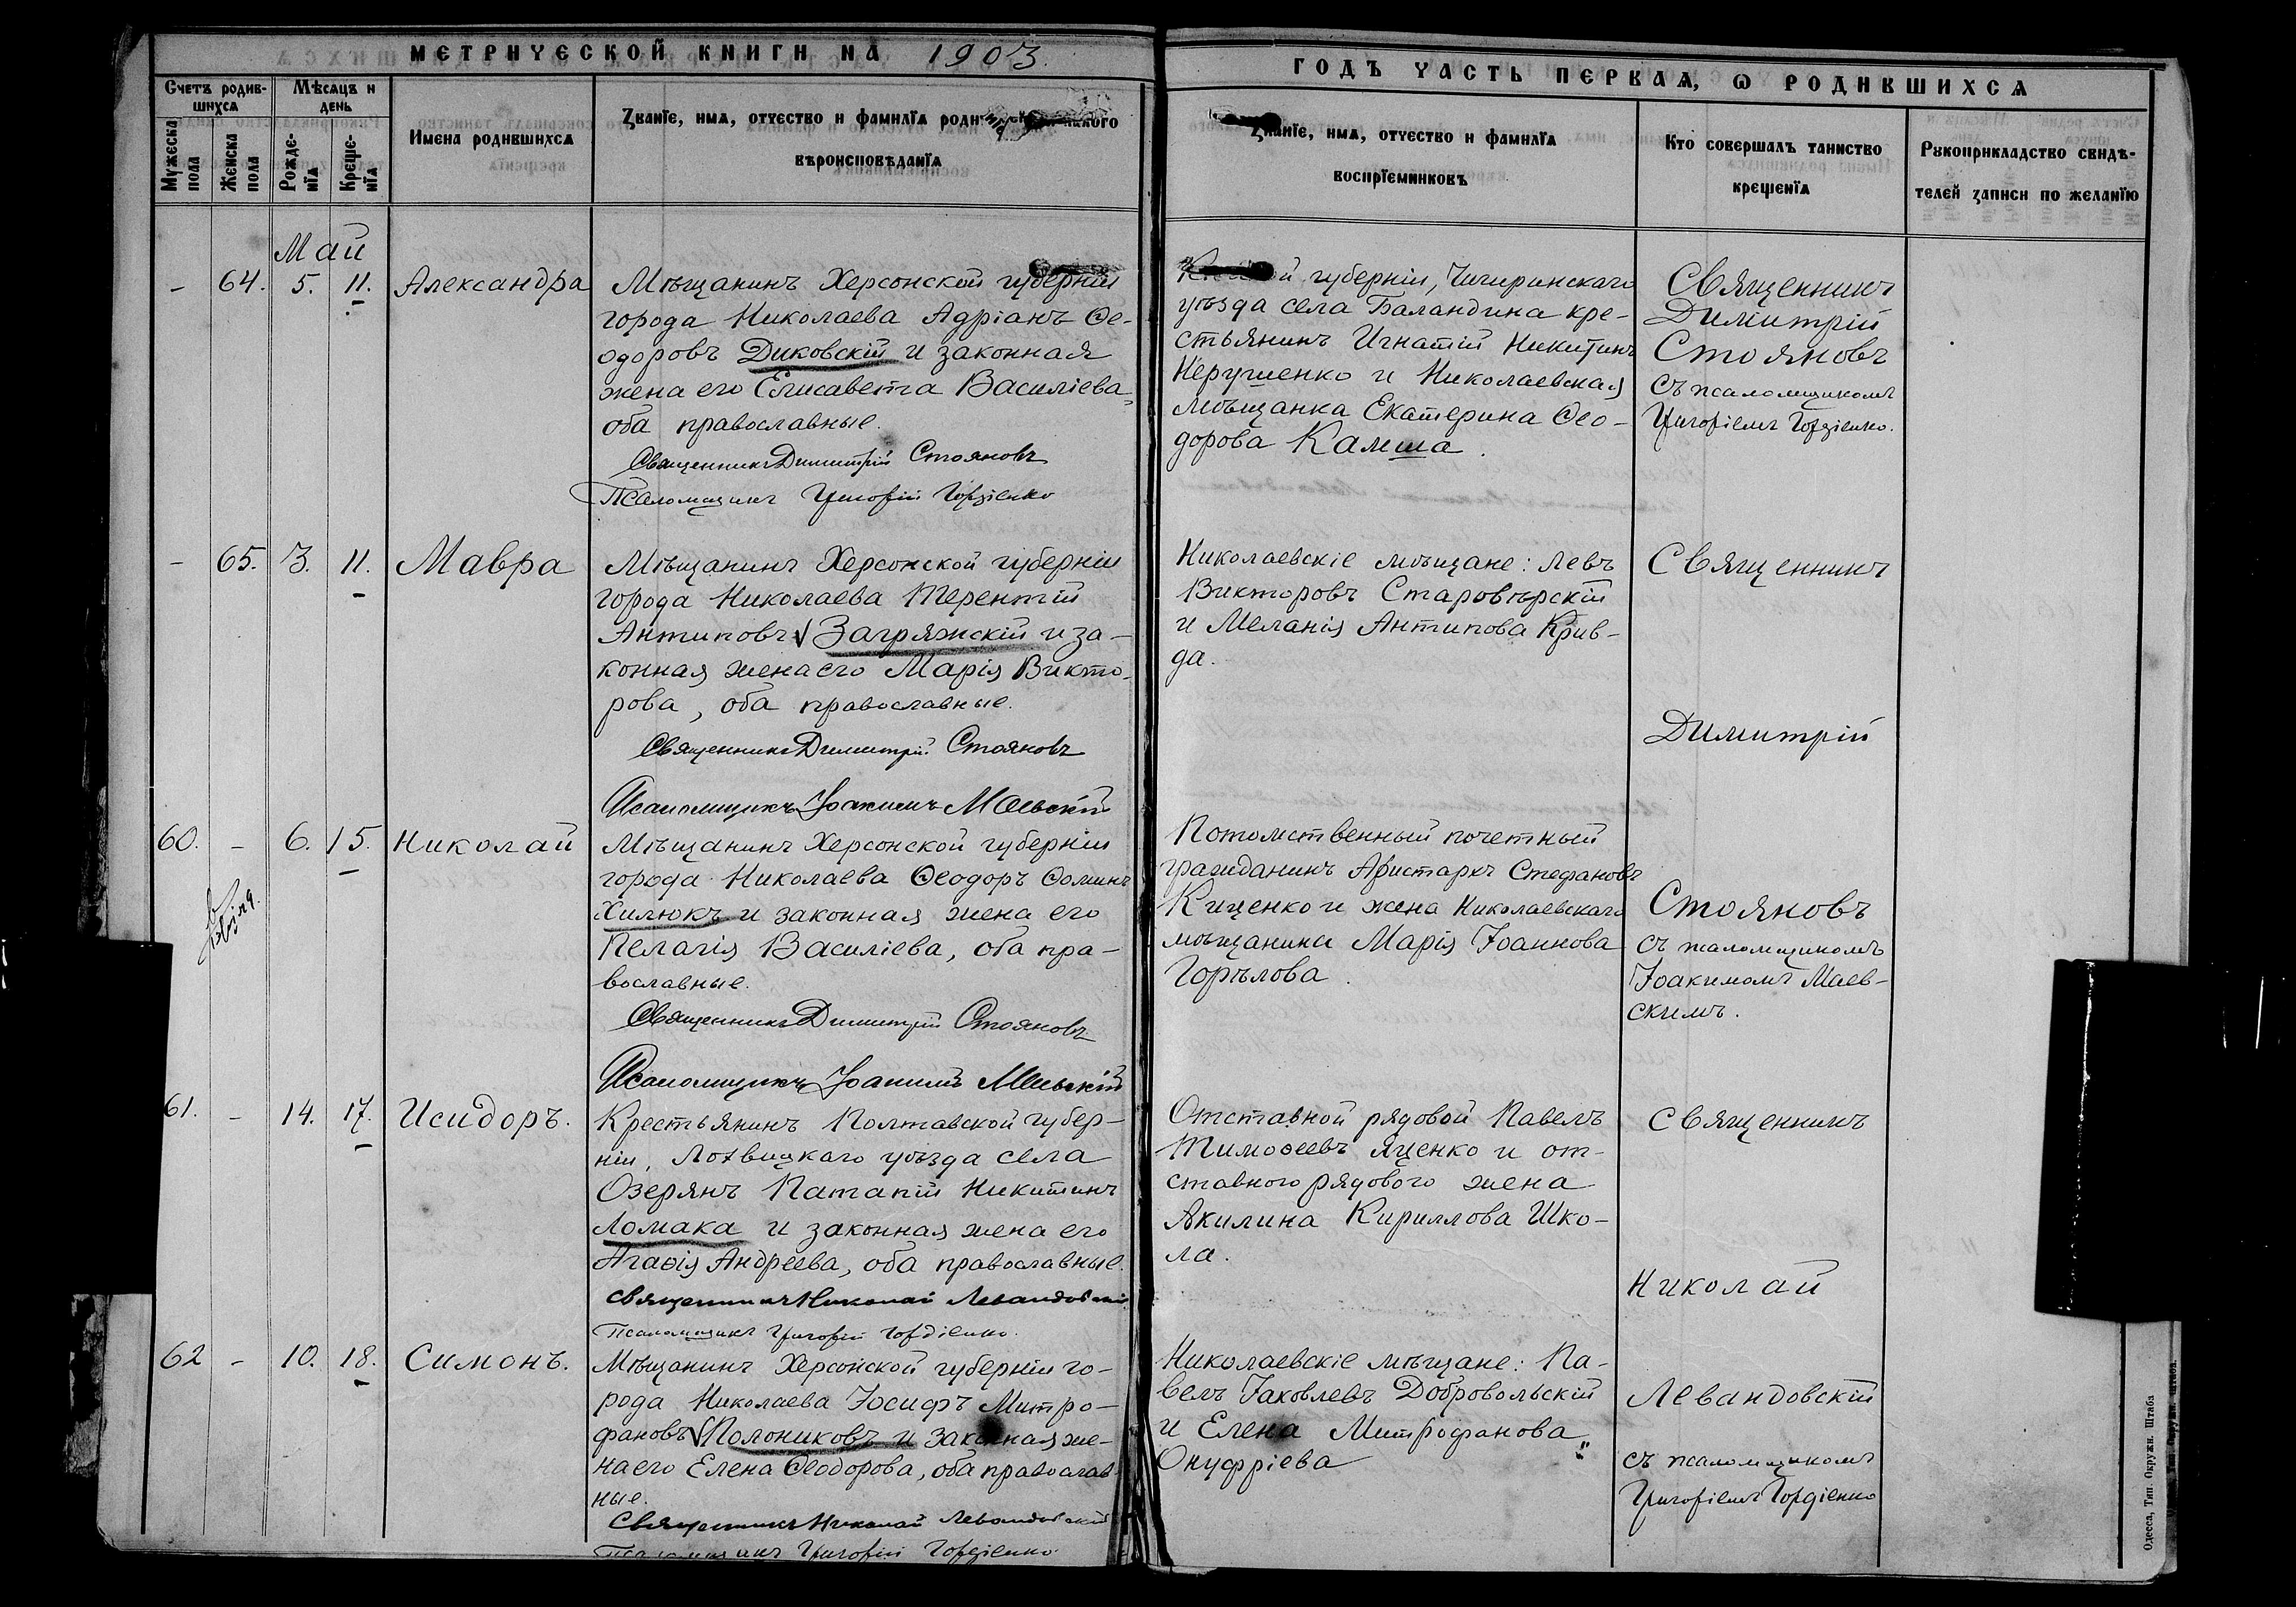 МЕТРИЧЕСКОЙ КНИГИ НА 1903.
ГОДЪ ЧАСТЬ ПЕРВАЯ, Ѡ РОДИВШИХСЯ
Счетъ родив-
шихся
Мѣсяцъ и
день
Мужеска
пола
Женска
пола
Рожде-
нїя
Креще-
нїя
Имена родившихся
Званїе, имя, отчество и фамилїа
вѣроисповѣданїя
Званїе, имя, отчество и фамилїя
воспрїемниковъ
Кто совершалъ таинство
крещенїя
Рукоприкладство свидѣ-
телей записи по желанїю
Май
- 64. 5. 11. Александра
Мѣщанинъ Херсонской губерніи
города Николаева Адріанъ Ѳе-
одоровъ Диковскій и законная
жена его Елисавета Василіева,
оба православные.
Священникъ Димитрій Стояновъ
Псаломщикъ Григорій Гордіенко
губерніи, Чигиринскаго
уѣзда села Баландина кре-
стьянинъ Игнатій Никитинъ
Нерушенко и Николаевская
мѣщанка Екатерина Ѳео-
дорова Камша.
Священникъ
Димитрій
Стояновъ
съ псаломщикомъ
Григоріемъ Гордіенко.
- 65. 3. 11. Мавра
Мѣщанинъ Херсонской губерніи
города Николаева Терентій
Антиповъ Загряжскій и за-
конная жена его Марія Викто-
рова, оба православные.
Священникъ Димитрій Стояновъ
Псаломщикъ Іоакимъ Маевскій
Николаевскіе мѣщане: Левъ
Викторовъ Старовѣрскій
и Меланія Антипова Крив-
да.
Священникъ
Димитрій
60. - 6. 15. Николай
Мѣщанинъ Херсонской губерніи
города Николаева Ѳеодоръ Ѳоминъ
Хилюкъ и законная жена его
Пелагія Василіева, оба пра-
вославные.
Священникъ Димитрій Стояновъ
Псаломщикъ Іоакимъ Маевскій
Потомственный почетный
гражданинъ Аристархъ Стефановъ
Киценко и жена Николаевскаго
мѣщанина Марія Іоаннова
Горѣлова.
Стояновъ
съ псаломщикомъ
Іоакимомъ Маев-
скимъ.
61. - 14. 17. Исидоръ.
Крестьянинъ Полтавской губер-
ніи, Лохвицкаго уѣзда села
Озерянъ Патапій Никитинъ
Ломака и законная жена его
Агаѳія Андреева, оба православные.
Священникъ Николай Левандовскій
Псаломщикъ Григорій Гордіенко.
Отставной рядовой Павелъ
Тимоѳеевъ Яценко и от-
ставного рядового жена
Акилина Кириллова Шко-
ла.
Священникъ
Николай
62 - 10. 18. Симонъ.
Мѣщанинъ Херсонской губерніи го-
рода Николаева Іосифъ Митро-
фановъ Полониковъ и законная же-
на его Елена Ѳеодорова, оба православ-
ные.
Священникъ Николай Левандовскій
Псаломщикъ Григорій Гордіенко
Николаевскіе мѣщане: Па-
велъ Іаковлевъ Добровольскій
и Елена Митрофанова
Онуфріева
Левандовскій
съ псаломщикомъ
Григоріемъ Гордіенко
Одесса, Тип. Окружн. Штаба